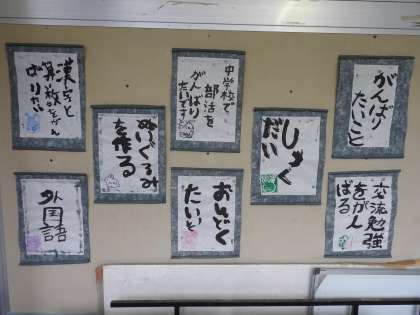 がんばり
たいこと
交流勉強
をがん
ばる
しゅく
だい
中学校で
部活を
がんばり
たいです
おんどく
ぬいぐるみ
を作る
漢字と
算数をがん
ばりたい
外国語